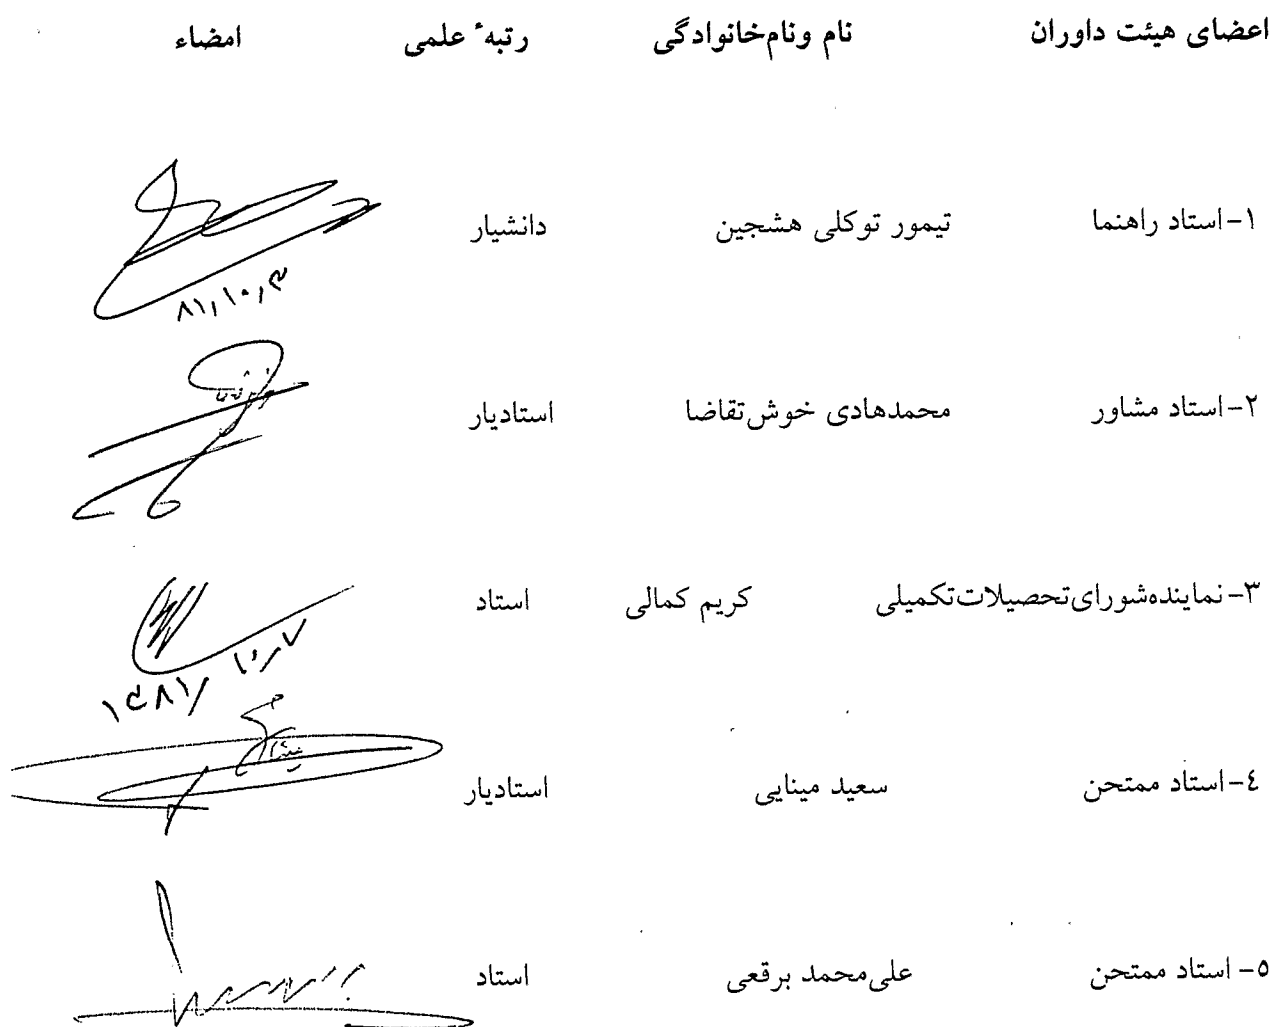 اعضای هیئت داوران نام ونام‌خانوادگی رتبهٔ علمی امضاء
۱-استاد راهنما تیمور توکلی هشجین دانشیار
۸۱,۱۰,۳
۲-استاد مشاور محمدهادی خوش‌تقاضا استادیار
۳-نماینده‌شورای‌تحصیلات‌تکمیلی کریم کمالی استاد
۱۳۸۱/۱۰/۷
٤-استاد ممتحن سعید مینایی استادیار
٥- استاد ممتحن علی‌محمد برقعی استاد